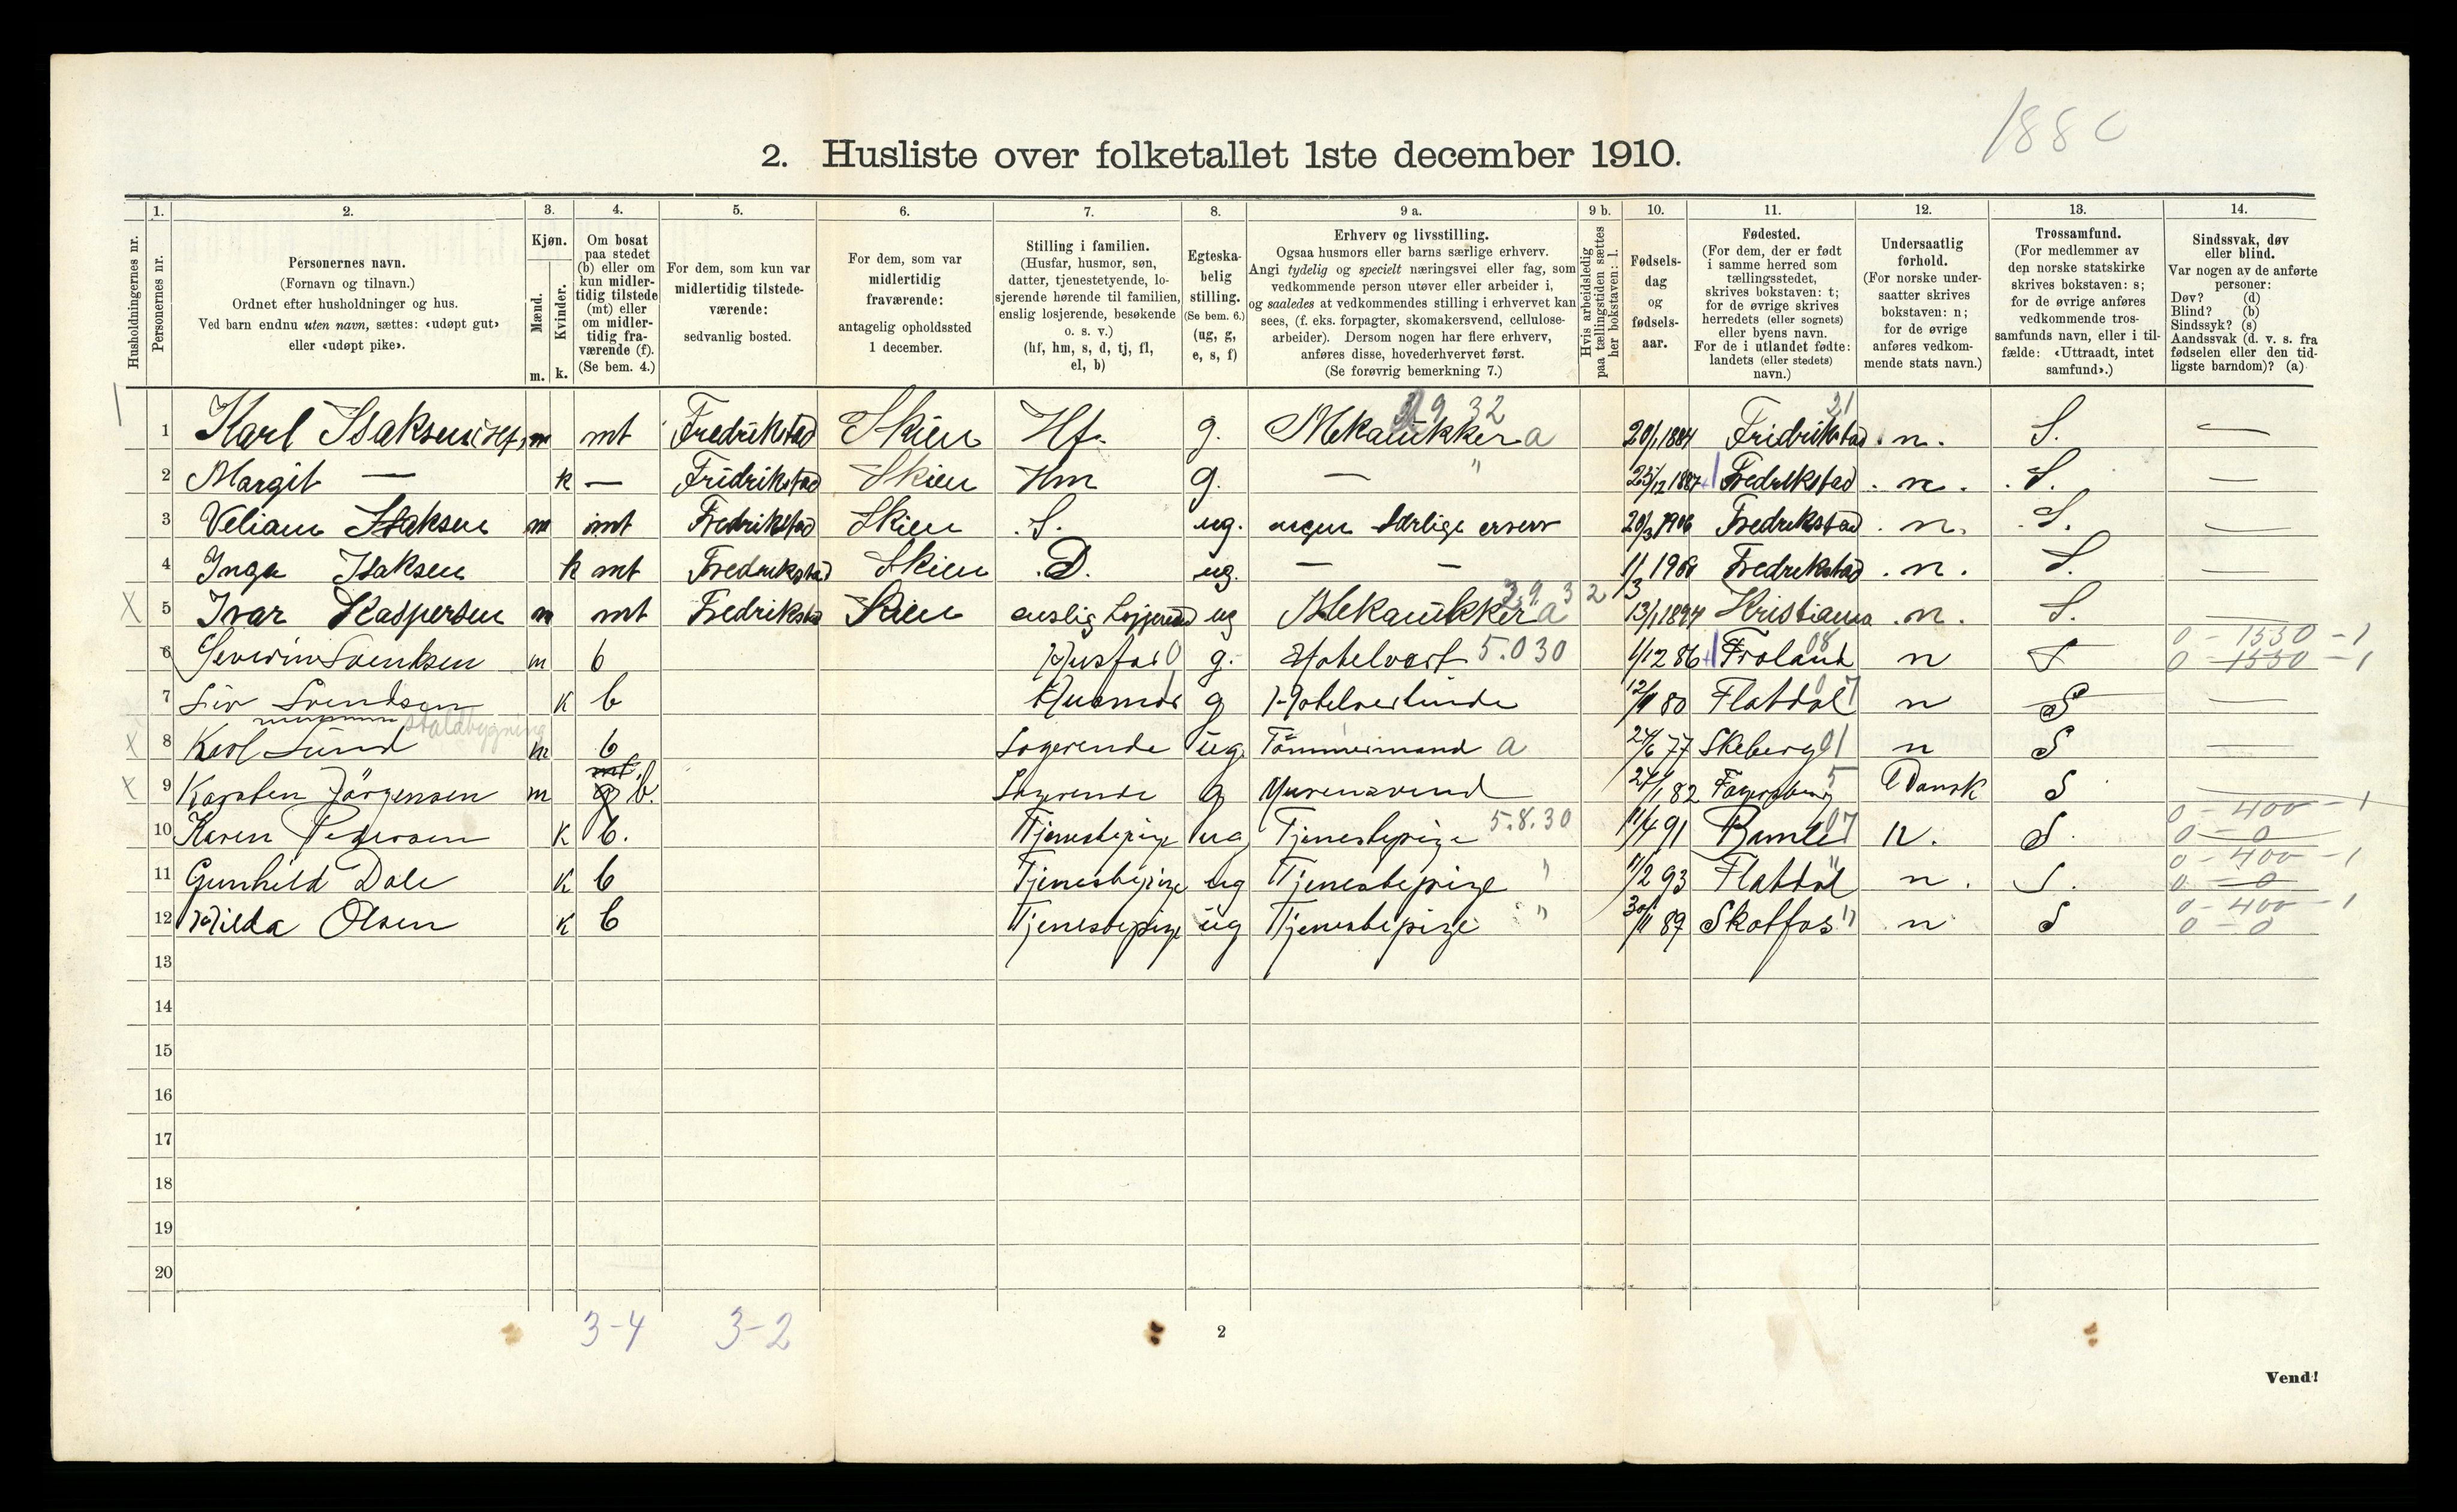 1880
2. Husliste over folketallet 1ste december 1910.
Husholdningernes nr.
1. Personernes nr.
2. Personernes navn. (Fornavn og tilnavn.) Ordnet efter husholdninger og hus. Ved barn endnu uten navn, sættes: «udøpt gut» eller «udøpt pike».
3. Kjøn. Mænd. m. Kvinder. k.
4. Om bosat paa stedet (b) eller om kun midler-tidig tilstede (mt) eller om midler-tidig fra-værende (f). (Se bem. 4.)
5. For dem, som kun var midlertidig tilstede-værende: sedvanlig bosted.
6. For dem, som var midlertidig fraværende: antagelig opholdssted 1 december.
7. Stilling i familien. (Husfar, husmor, søn, datter, tjenestetyende, lo-sjerende hørende til familien, enslig losjerende, besøkende o. s. v.) (hf, hm, s, d, tj, fl, el, b)
8. Egteska-belig stilling. (Se bem. 6.) (ug, g, e, s, f)
9 a. Erhverv og livsstilling. Ogsaa husmors eller barns særlige erhverv. Angi tydelig og specielt næringsvei eller fag, som vedkommende person utøver eller arbeider i, og saaledes at vedkommendes stilling i erhvervet kan sees, (f. eks. forpagter, skomakersvend, cellulose-arbeider). Dersom nogen har flere erhverv, anføres disse, hovederhvervet først. (Se forøvrig bemerkning 7.)
9 b. Hvis arbeidsledig paa tællingstiden sættes her bokstaven: l.
10. Fødsels-dag og fødsels-aar.
11. Fødested. (For dem, der er født i samme herred som tællingsstedet, skrives bokstaven: t; for de øvrige skrives herredets (eller sognets) eller byens navn. For de i utlandet fødte: landets (eller stedets) navn.)
12. Undersaatlig forhold. (For norske under-saatter skrives bokstaven: n; for de øvrige anføres vedkom-mende stats navn.)
13. Trossamfund. (For medlemmer av den norske statskirke skrives bokstaven: s; for de øvrige anføres vedkommende tros-samfunds navn, eller i til-fælde: «Uttraadt, intet samfund».)
14. Sindssvak, døv eller blind. Var nogen av de anførte personer: Døv? (d) Blind? (b) Sindssyk? (s) Aandssvak (d. v. s. fra fødselen eller den tid-ligste barndom)? (a)
1 Karl Isaksen (Hf) m mt Fredrikstad Skien Hf. g. Mekanikker a 20/1 1884 Fridrikstad n. S. —
2 Margit — k — Fridrikstad Skien Hm g. — " 25/12 1887 Fredrikstad n. S. —
3 Veliam Isaksen m mt Fredrikstad Skien S. ug. ingen særlige erverv 20/3 1906 Fredrikstad n. S. —
4 Inga Isaksen k mt Fredrikstad Skien D. ug. — — Fredrikstad n. S. —
X 5 Ivar Kaspersen m mt Fredrikstad Skien enslig Losjerend ug Mekanikker a 3.9.32 13/1 1894 Kristiania n. S. —
6 Severin Svendsen m b Husfar g. Hotelvært 5.0 30 1/12 86 Froland 08 n S 0 - 1550 - 1 0 - 1550 - 1
7 Liv Svendsen k b Husmor g Hotelvertinde 12/11 80 Flatdal n S —
staldbygning
X 8 Karl Lund m b Logerende ug. Tömmermand a 24/6 77 Skeberg 01 n S —
X 9 Karsten Jörgensen m mt. b. Logerende g Murersvend 24/1 82 Dansk S
10 Karen Pedersen k b. Tjenestepige ug Tjenestepige 5.8.30 11/4 91 Bamle 07 n. S. 0 - 400 - 1 0 - 0
11 Gunhild Dale k b Tjenestepige ug Tjenestepige " 17/2 93 Flatdal " n. S. 0 - 400 - 1 0 - 0
12 Hilda Olsen k b Tjenestepige ug Tjenestepige " 30/11 89 Skotfos " n S 0 - 400 - 1 0 - 0
13
14
15
16
17
18
19
20
3-4 3-2
2
Vend!